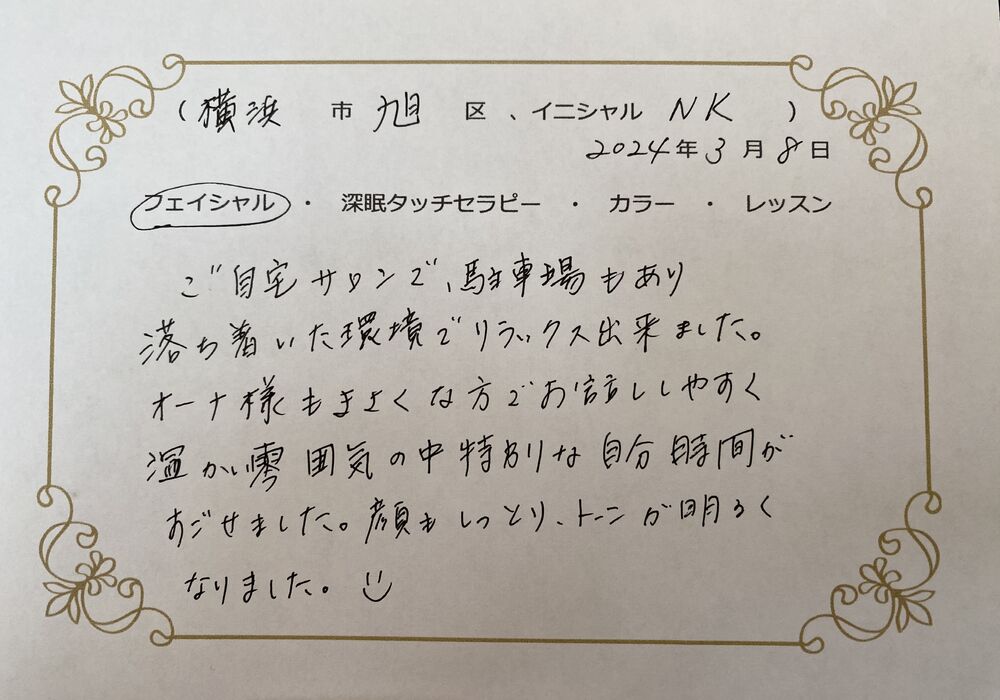 (横浜 市 旭 区、イニシャル NK )
2024年3月8日
フェイシャル ・ 深眠タッチセラピー ・ カラー ・ レッスン
ご自宅サロンで、駐車場もあり
落ち着いた環境でリラックス出来ました。
オーナ様もきさくな方でお話ししやすく
温かい雰囲気の中特別な自分時間が
すごせました。顔もしっとり、トーンが明るく
なりました。